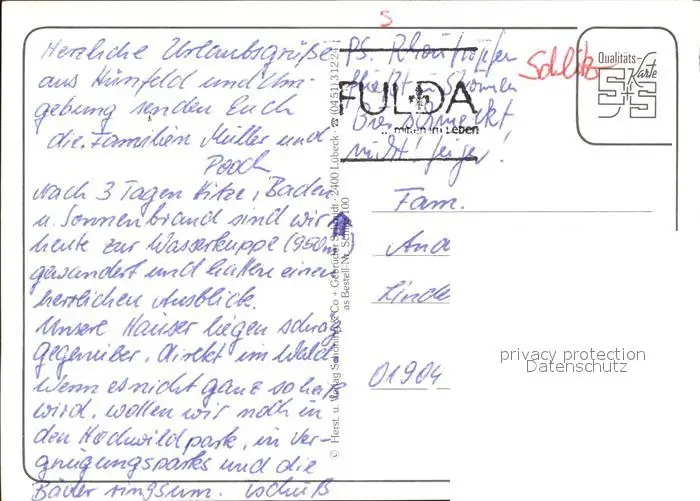 Herzliche Urlaubsgrüße
aus Hünfeld und Um-
gebung senden Euch
die Familien Müller und
Pooch
Nach 3 Tagen Hitze, Baden
u. Sonnenbrand sind wir
heute zur Wasserkuppe (950m)
gewandert und hatten einen
herrlichen Ausblick.
Unsere Häuser liegen schräg
gegenüber, direkt im Wald.
Wenn es nicht ganz so heiß
wird, wollen wir noch in
den Hochwildpark, in Ver-
gnügungsparks und die
Bäder ringsum. Tschüß
PS. Rhöntropfen
fließt in Strömen
Bier schmeckt
nicht!
FULDA
...mitten im Leben
S
Schlitz
Qualitäts-
Karte
S+S
© Herst. u. Verlag Schöning & Co + Gebrüder Schmidt · 2400 Lübeck · (0451) 3122
Fam.
And
Linde
01904
privacy protection
Datenschutz